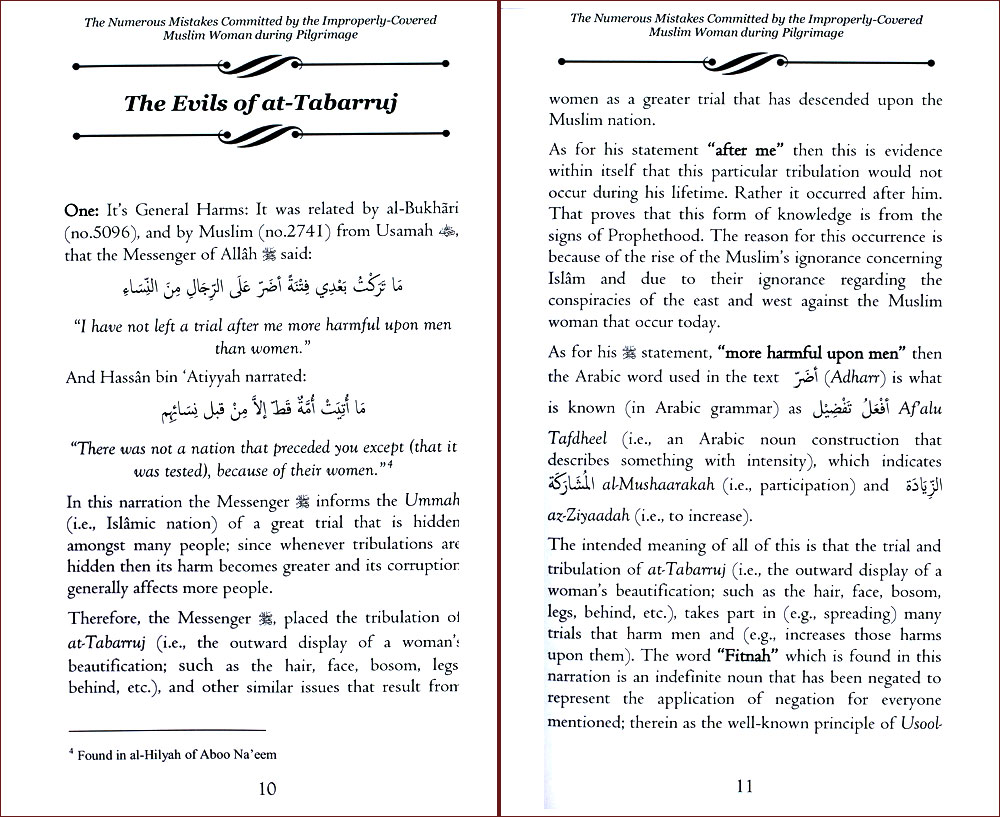 The Numerous Mistakes Committed by the Improperly-Covered
Muslim Woman during Pilgrimage
The Evils of at-Tabarruj
One: It's General Harms: It was related by al-Bukhāri
(no.5096), and by Muslim (no.2741) from Usamah ,
that the Messenger of Allâh ﷺ said:
مَا تَرَكْتُ بَعْدِي فِتْنَةً أَضَرّ عَلَى الرِّجَالِ مِنَ النِّسَاءِ
“I have not left a trial after me more harmful upon men
than women.”
And Hassân bin ‘Atiyyah narrated:
مَا أُتِيَتْ أُمَّةٌ قَطّ إلاَّ مِنْ قبل نِسَائِهِم
“There was not a nation that preceded you except (that it
was tested), because of their women.”⁴
In this narration the Messenger ﷺ informs the Ummah
(i.e., Islâmic nation) of a great trial that is hidden
amongst many people; since whenever tribulations are
hidden then its harm becomes greater and its corruption
generally affects more people.
Therefore, the Messenger ﷺ, placed the tribulation of
at-Tabarruj (i.e., the outward display of a woman's
beautification; such as the hair, face, bosom, legs
behind, etc.), and other similar issues that result from
⁴ Found in al-Hilyah of Aboo Na'eem
10
The Numerous Mistakes Committed by the Improperly-Covered
Muslim Woman during Pilgrimage
women as a greater trial that has descended upon the
Muslim nation.
As for his statement “after me” then this is evidence
within itself that this particular tribulation would not
occur during his lifetime. Rather it occurred after him.
That proves that this form of knowledge is from the
signs of Prophethood. The reason for this occurrence is
because of the rise of the Muslim's ignorance concerning
Islâm and due to their ignorance regarding the
conspiracies of the east and west against the Muslim
woman that occur today.
As for his ﷺ statement, “more harmful upon men” then
the Arabic word used in the text أضَرّ (Adharr) is what
is known (in Arabic grammar) as أفْعَلُ تَفْضِيْل Af'alu
Tafdheel (i.e., an Arabic noun construction that
describes something with intensity), which indicates
الْمُشَارَكَة al-Mushaarakah (i.e., participation) and الزِّيَادَة
az-Ziyaadah (i.e., to increase).
The intended meaning of all of this is that the trial and
tribulation of at-Tabarruj (i.e., the outward display of a
woman's beautification; such as the hair, face, bosom,
legs, behind, etc.), takes part in (e.g., spreading) many
trials that harm men and (e.g., increases those harms
upon them). The word “Fitnah” which is found in this
narration is an indefinite noun that has been negated to
represent the application of negation for everyone
mentioned; therein as the well-known principle of Usool-
11